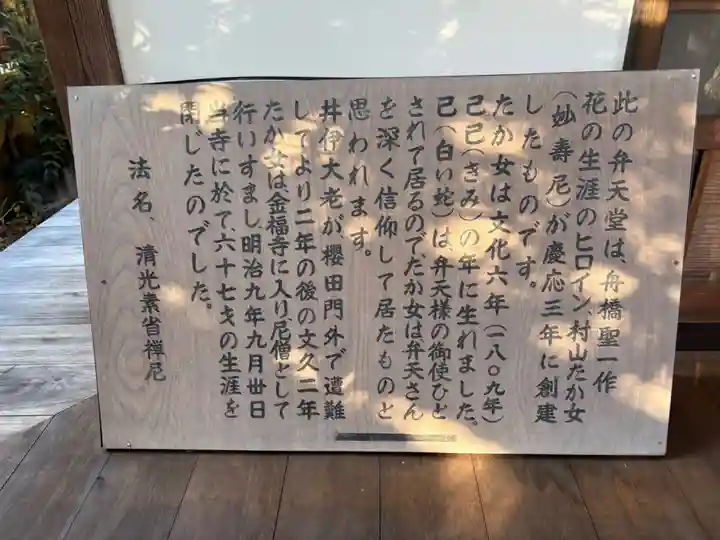 此の弁天堂は、舟橋聖一作
花の生涯のヒロイン、村山たか女
(妙壽尼)が慶応三年に創建
したものです。
たか女は文化六年(一八〇九年)
己巳(きみ)の年に生れました。
巳(白い蛇)は、弁天様の御使ひと
されて居るので、たか女は、弁天さん
を深く信仰して居たものと
思われます。
井伊大老が櫻田門外で遭難
してより二年の後の文久二年
たか女は、金福寺に入り尼僧として
行いすまし、明治九年九月卅日
当寺に於て、六十七才の生涯を
閉じたのでした。
法名、清光素省禅尼